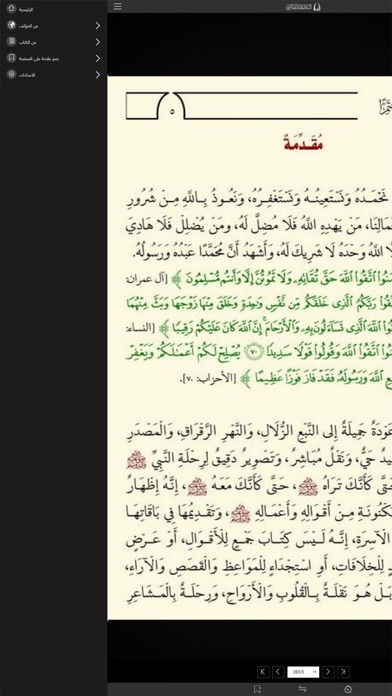 الرئيسية
عن المؤلف
عن الكتاب
ضع علامة على الصفحة
الاعدادات
٥
مُقَدِّمَةٌ
نَحْمَدُهُ وَنَسْتَعِينُهُ وَنَسْتَغْفِرُهُ، وَنَعُوذُ بِاللَّهِ مِنْ شُرُورِ
مَالِنَا، مَنْ يَهْدِهِ اللَّهُ فَلَا مُضِلَّ لَهُ، وَمَنْ يُضْلِلْ فَلَا هَادِيَ
اللَّهُ وَحْدَهُ لَا شَرِيكَ لَهُ، وَأَشْهَدُ أَنَّ مُحَمَّدًا عَبْدُهُ وَرَسُولُهُ.
مَنُوا اتَّقُوا اللَّهَ حَقَّ تُقَاتِهِ وَلَا تَمُوتُنَّ إِلَّا وَأَنتُم مُّسْلِمُونَ ﴾ [آل عمران:
قُوا رَبَّكُمُ الَّذِي خَلَقَكُم مِّن نَّفْسٍ وَاحِدَةٍ وَخَلَقَ مِنْهَا زَوْجَهَا وَبَثَّ مِنْهُمَا
قُوا اللَّهَ الَّذِي تَسَاءَلُونَ بِهِ وَالْأَرْحَامَ إِنَّ اللَّهَ كَانَ عَلَيْكُمْ رَقِيبًا ﴾ [النساء:
نُوا اتَّقُوا اللَّهَ وَقُولُوا قَوْلًا سَدِيدًا ٧٠ يُصْلِحْ لَكُمْ أَعْمَالَكُمْ وَيَغْفِرْ
عِ اللَّهَ وَرَسُولَهُ فَقَدْ فَازَ فَوْزًا عَظِيمًا ﴾ [الأحزاب: ٧٠].
عَوْدَةٌ جَمِيلَةٌ إِلى النَّبْعِ الزُّلَالِ، وَالنَّهْرِ الرَّقْرَاقِ، وَالْمَصْدَرِ
يدٌ حَيٌّ، وَنَقْلٌ مُبَاشِرٌ، وَتَصْوِيرٌ دَقِيقٌ لِرِحْلَةِ النَّبِيِّ ﷺ
تَّى كَأَنَّكَ تَرَاهُ ﷺ، حَتَّى كَأَنَّكَ مَعَهُ ﷺ، إِنَّهُ إِظْهَارٌ
كْنُونَةِ مِنْ أَقْوَالِهِ وَأَعْمَالِهِ ﷺ، وَتَقْدِيمُهَا فِي بَاقَاتِهَا
الْآسِرَةِ، إِنَّهُ لَيْسَ كِتَابَ جَمْعٍ لِلْأَقْوَالِ، أَوْ عَرْضٍ
دٍ لِلْخِلَافَاتِ، أَوِ اسْتِجْدَاءٍ لِلْمَوَاعِظِ وَالْقَصَصِ وَالْآرَاءِ،
بَلْ هُوَ نَقْلَةٌ بِالْقُلُوبِ وَالْأَرْوَاحِ، وَرِحْلَةٌ بِالْمَشَاعِرِ